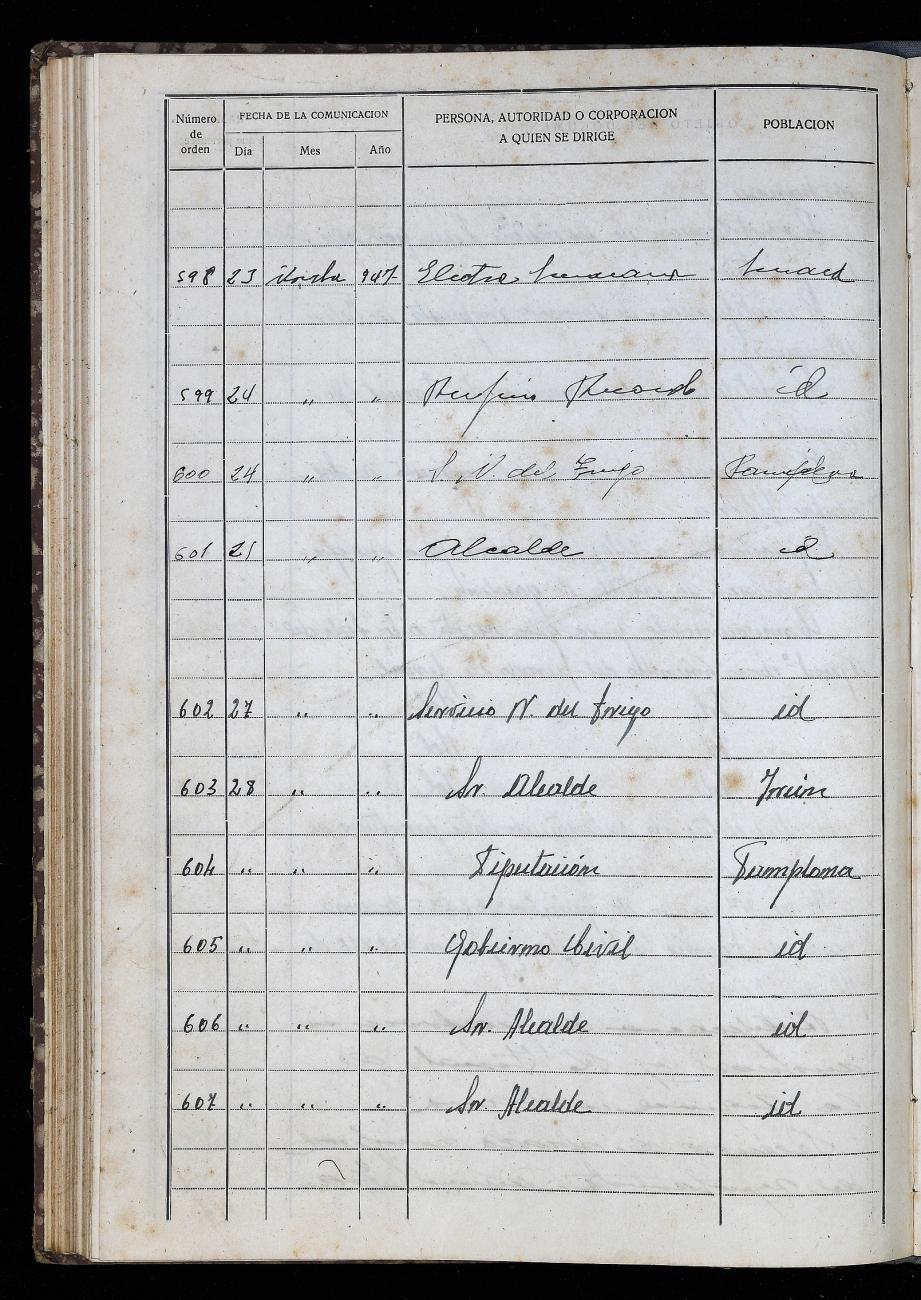 Número de orden FECHA DE LA COMUNICACION PERSONA, AUTORIDAD O CORPORACION A QUIEN SE DIRIGE POBLACION
Día Mes Año
598 23 947 Electra
599 24 " " Rufino id
600 24 " " S. N. del Trigo Pamplona
601 25 " " Alcalde id
602 27 " " Servicio N. del Trigo id
603 28 " " Sr. Alcalde Irún
604 " " " Diputación Pamplona
605 " " " Gobierno Civil id
606 " " " Sr. Alcalde id
607 " " " Sr. Alcalde id